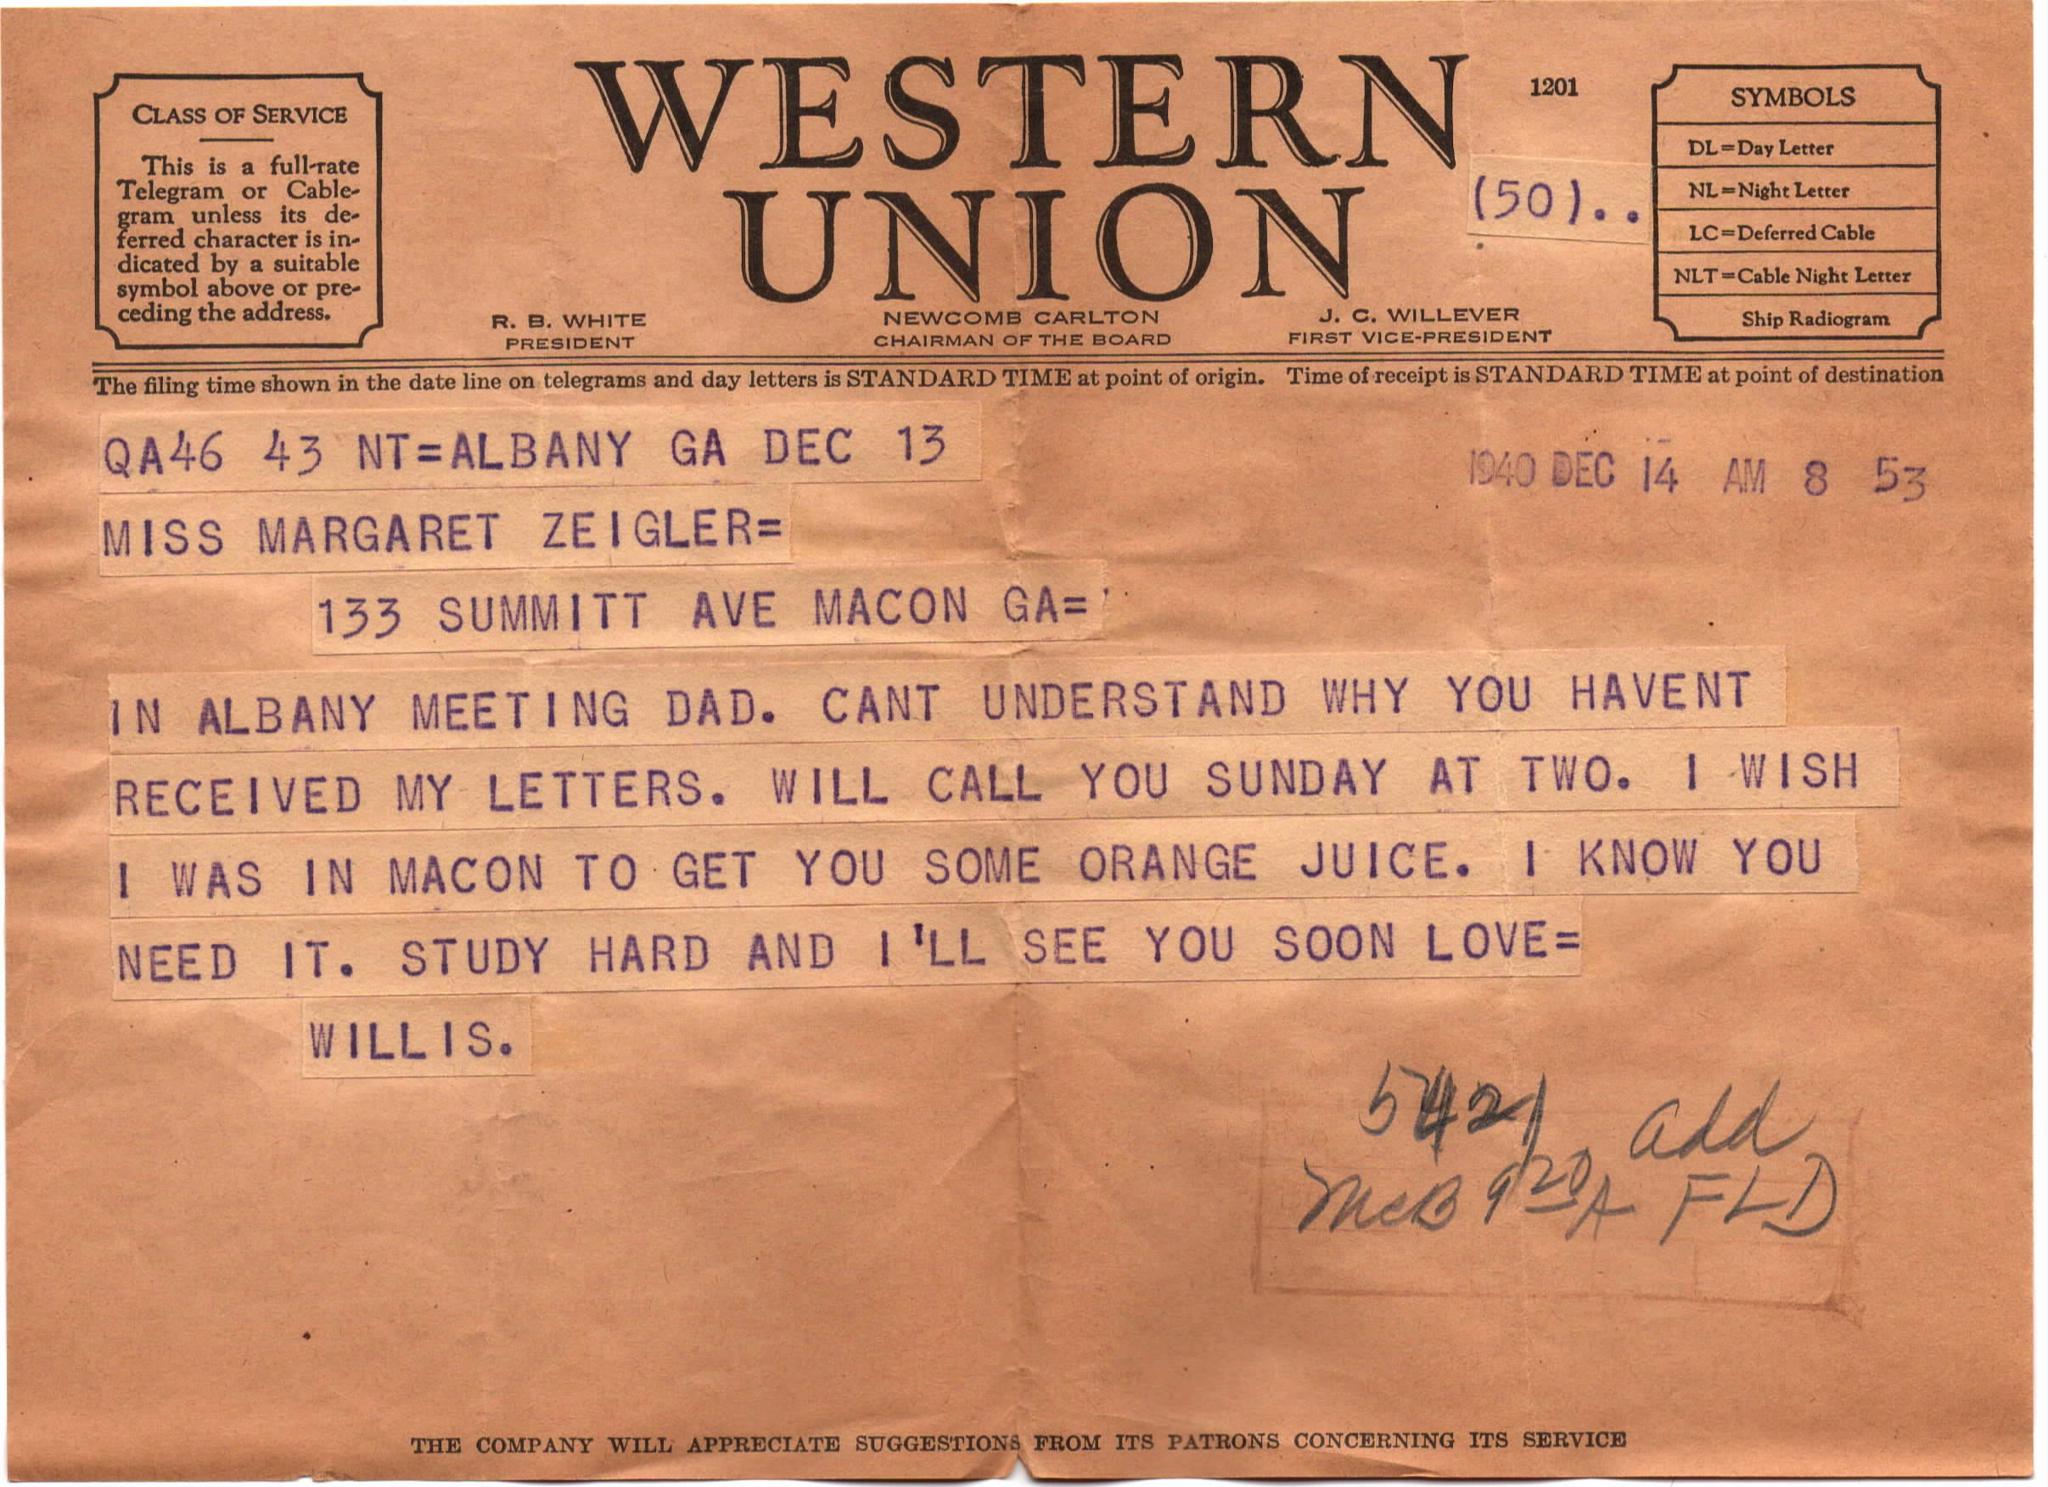 CLASS OF SERVICE
This is a full-rate
Telegram or Cable-
gram unless its de-
ferred character is in-
dicated by a suitable
symbol above or pre-
ceding the address.
WESTERN
UNION
1201
(50)..
SYMBOLS
DL=Day Letter
NL=Night Letter
LC=Deferred Cable
NLT=Cable Night Letter
Ship Radiogram
R. B. WHITE
PRESIDENT
NEWCOMB CARLTON
CHAIRMAN OF THE BOARD
J. C. WILLEVER
FIRST VICE-PRESIDENT
The filing time shown in the date line on telegrams and day letters is STANDARD TIME at point of origin. Time of receipt is STANDARD TIME at point of destination
QA46 43 NT=ALBANY GA DEC 13
1940 DEC 14 AM 8 53
MISS MARGARET ZEIGLER=
133 SUMMITT AVE MACON GA=
IN ALBANY MEETING DAD. CANT UNDERSTAND WHY YOU HAVENT
RECEIVED MY LETTERS. WILL CALL YOU SUNDAY AT TWO. I WISH
I WAS IN MACON TO GET YOU SOME ORANGE JUICE. I KNOW YOU
NEED IT. STUDY HARD AND I'LL SEE YOU SOON LOVE=
WILLIS.
5421 add
McB 920A FLD
THE COMPANY WILL APPRECIATE SUGGESTIONS FROM ITS PATRONS CONCERNING ITS SERVICE